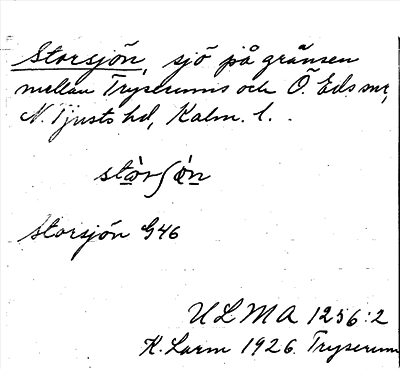 Storsjön, sjö på gränsen
mellan Tryserums och Ö. Eds snr,
N. Tjusts hd, Kalm. l.
Storsjön G46
ULMA 1256:2
K. Larm 1926. Tryserum